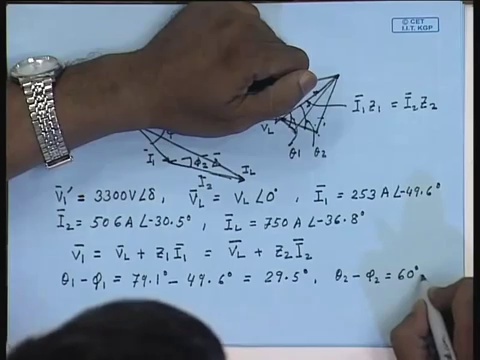 © CET
I.I.T. KGP
Ī₁Z₁ = Ī₂Z₂
V_L
θ₁ θ₂
Ī₁
Φ₂
I₂
I_L
V̄₁' = 3300V∠δ, V̄_L = V_L ∠0°, Ī₁ = 253 A ∠-49.6°
Ī₂ = 506 A ∠-30.5°, Ī_L = 750 A ∠-36.8°
V̄₁ = V̄_L + Z₁Ī₁ = V̄_L + Z₂Ī₂
θ₁-φ₁ = 79.1° - 49.6° = 29.5°, θ₂-φ₂ = 60°